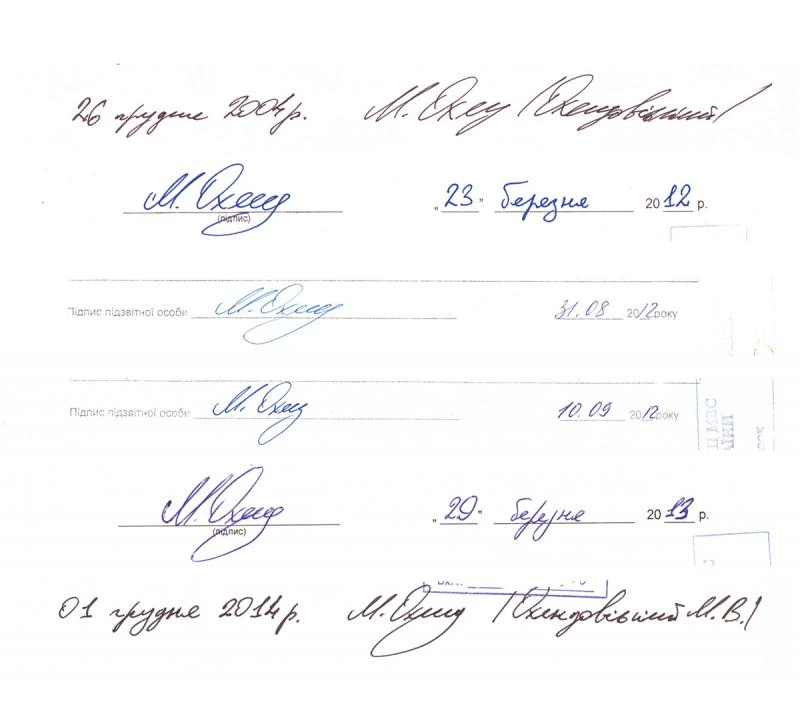 26 грудня 2004 р. М. Охенд /Охендовський/
М. Охенд „23" березня 2012 р.
(підпис)
Підпис підзвітної особи М. Охенд 31.08 2012 року
Підпис підзвітної особи М. Охенд 10.09 2012 року
ЦІ МВС
М. Охенд „29" березня 2013 р.
(підпис)
01 грудня 2014 р. М. Охенд /Охендовський М.В./